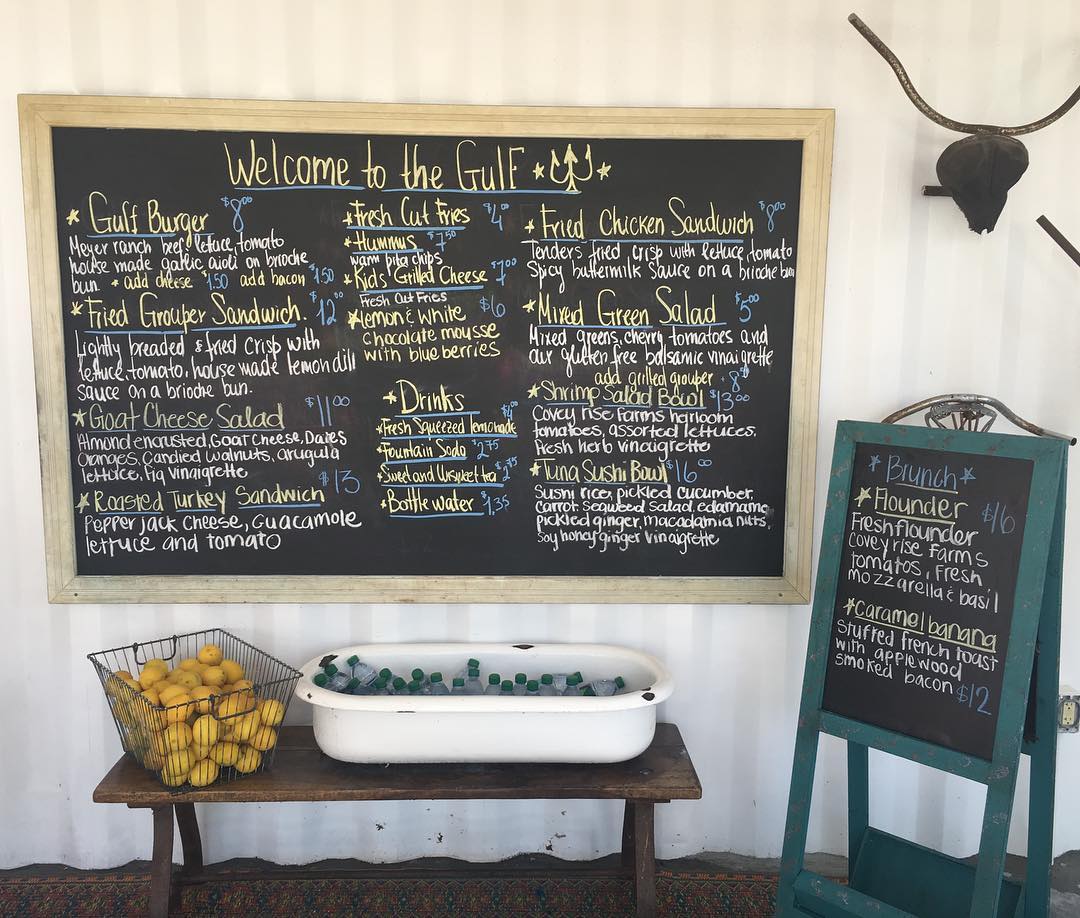 Welcome to the Gulf
Gulf Burger $8.00
Meyer ranch beef, lettuce, tomato
house made garlic aioli on brioche
bun. * add cheese $1.50 add bacon $1.50
* Fried Grouper Sandwich. $12.00
Lightly breaded & fried crisp with
lettuce, tomato, house made lemon dill
sauce on a brioche bun.
* Goat Cheese Salad $11.00
Almond encrusted, Goat Cheese, Dates
Oranges, Candied walnuts, arugula
lettuce, fig vinaigrette
* Roasted Turkey Sandwich $13
Pepper jack cheese, Guacamole
lettuce and tomato
* Fresh Cut Fries $4.00
* Hummus $7.50
warm pita chips
* Kid's Grilled Cheese $7.00
Fresh Cut Fries
* Lemon & white $6
chocolate mousse
with blueberries
* Drinks
* Fresh Squeezed lemonade $4.00
* Fountain Soda $2.75
* Sweet and Unsweet tea
* Bottle water $1.35
* Fried Chicken Sandwich $8.00
Tenders fried crisp with lettuce, tomato
Spicy buttermilk sauce on a brioche bun
* Mixed Green Salad $5.00
Mixed greens, cherry tomatoes and
our gluten free balsamic vinaigrette
add grilled grouper . 8
* Shrimp Salad Bowl $13.00
Covey rise Farms heirloom
tomatoes, assorted lettuces,
fresh herb vinaigrette
* Tuna Sushi Bowl $16.00
Sushi rice, pickled cucumber,
carrot seaweed salad, edamame
pickled ginger, macadamia nuts,
Soy honey ginger vinaigrette
* Brunch *
* Flounder $16
Fresh flounder
Covey rise Farms
tomatos, fresh
mozzarella & basil
* Caramel banana
stuffed french toast
with applewood
smoked bacon $12